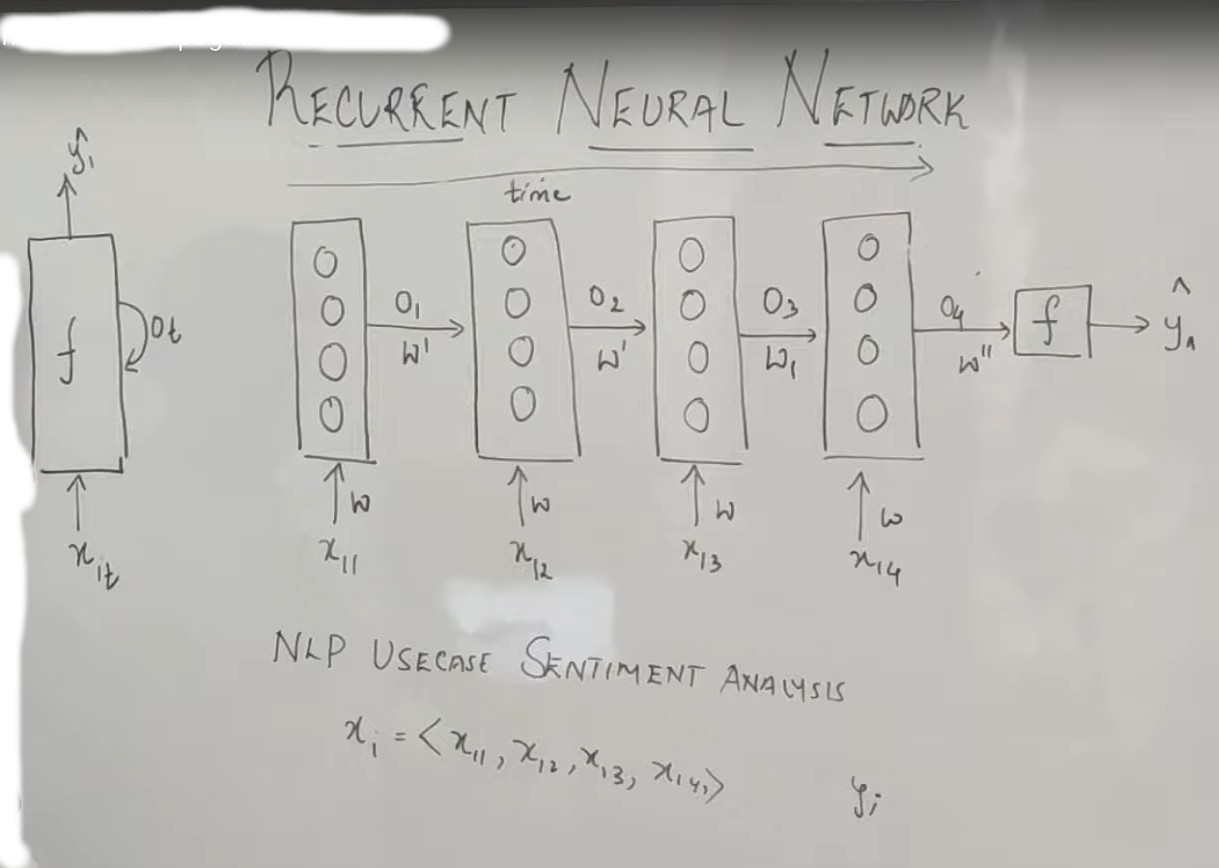 RECURRENT NEURAL NETWORK
time
ŷ₁
f
Oₜ
x₁ₜ
O₁
W'
O₂
W'
O₃
W₁
O₄
W''
f
ŷ₁
W
W
W
W
x₁₁
x₁₂
x₁₃
x₁₄
NLP USECASE SENTIMENT ANALYSIS
xᵢ = <x₁₁, x₁₂, x₁₃, x₁₄,>
yᵢ